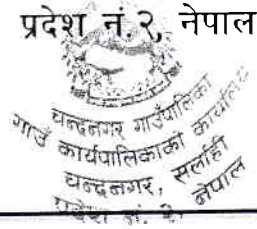 प्रदेश नं.२, नेपाल
चन्द्रनगर गाउँपालिका
गाउँ कार्यपालिकाको कार्यालय
चन्द्रनगर, सर्लाही
प्रदेश नं. २, नेपाल